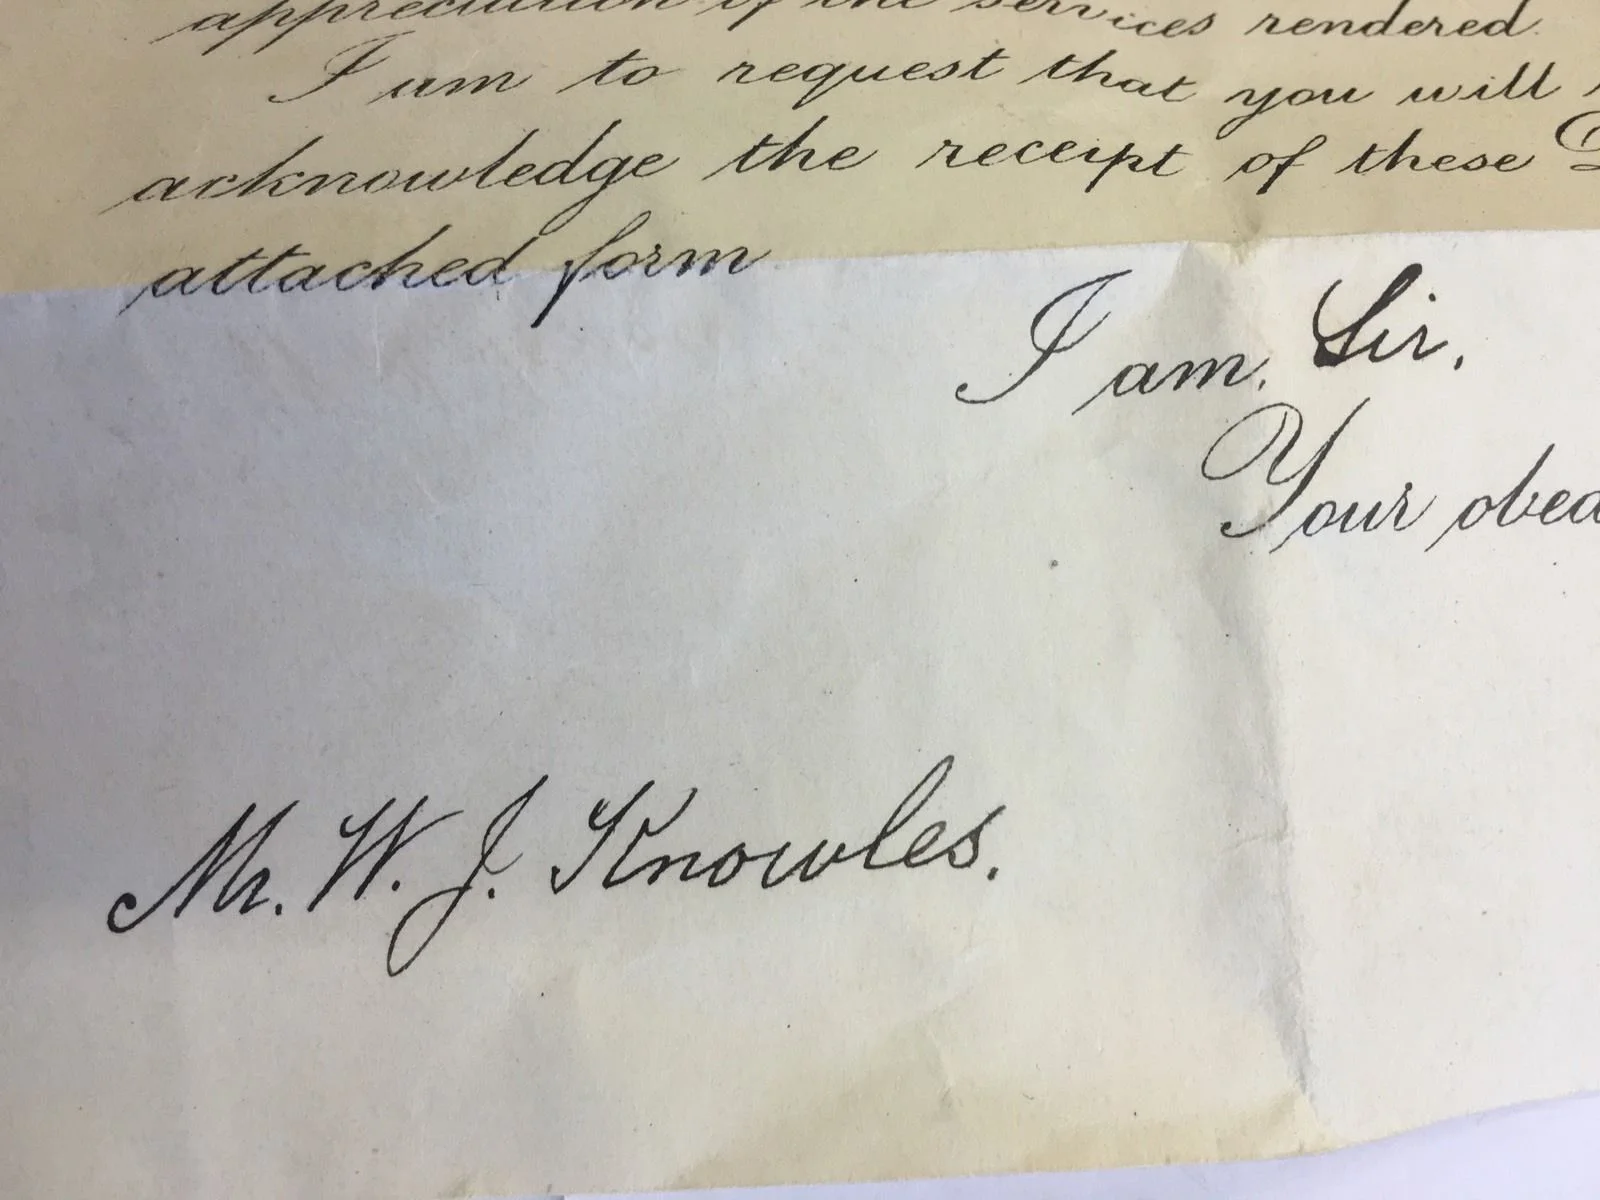 appreciation of the services rendered.
I am to request that you will
acknowledge the receipt of these
attached form
I am, Sir,
Your obed
Mr. W. J. Knowles.